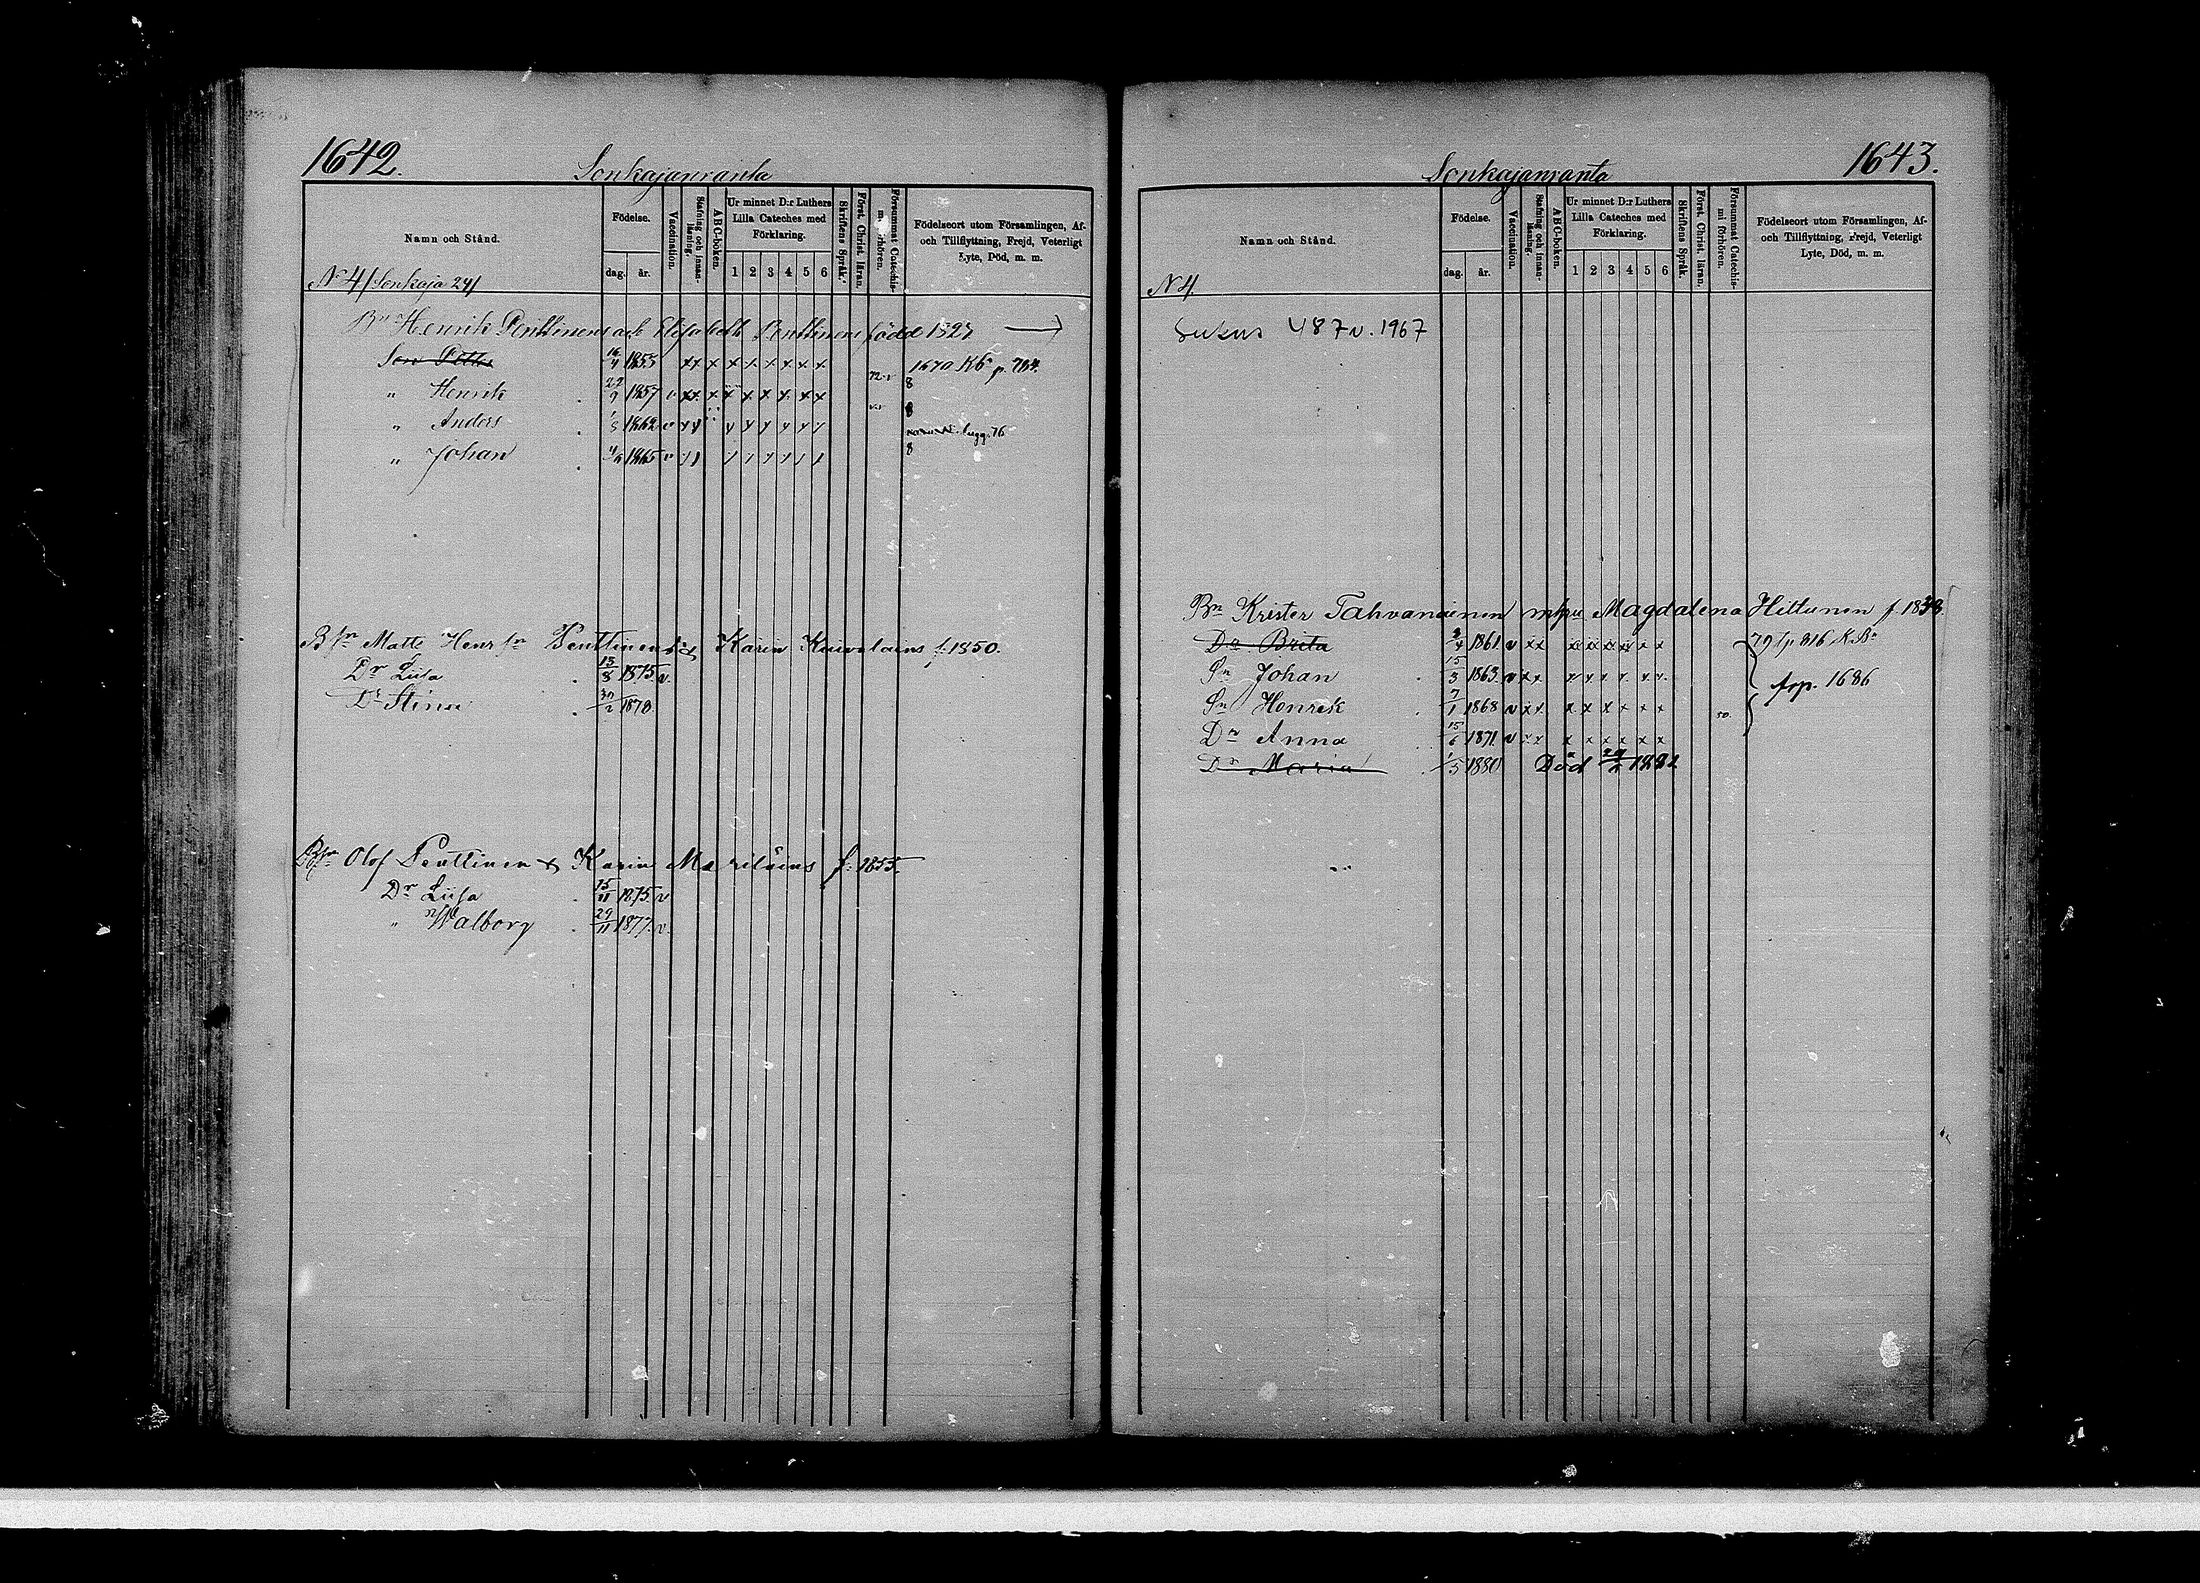 1642.
Sonkajanranta
Namn och Stånd.
Födelse.
dag.
år.
Vaccination.
Stafning och innan-läsning.
ABC-boken.
Ur minnet D:r Luthers
Lilla Cateches med
Förklaring.
1 2 3 4 5 6
Skriftens Språk.
Först. Christ. läran.
Försummat Catechis-
Födelseort utom Församlingen, Af-
och Tillflyttning, Frejd, Veterligt
Lyte, Död, m. m.
N 4 / Sonkaja 24/
Bn Henrik Penttinen och Elisabeth Penttinen född 182
Son Petter 16/4 1855 xx x x x x x x x 1670 Kb p. 704.
" Henrik 29/9 1857 v xx x x x x x x x 8
" Anders 1/3 1862 v x x x x x x x x
" Johan 1865 v 8
Bsn Matts Henr sn Penttinen & Karin Kuivalain f. 1850.
Dr Liisa 13/8 1875 v.
Dr Stina 1878
Bsn Olof Penttinen & Karin f. 1855.
Dr Liisa 15/11 1875 v
" Walborg 29/11 1877 v.
1643.
Sonkajanranta
Namn och Stånd.
Födelse.
dag.
år.
Vaccination.
Stafning och innan-läsning.
ABC-boken.
Ur minnet D:r Luthers
Lilla Cateches med
Förklaring.
1 2 3 4 5 6
Skriftens Språk.
Först. Christ. läran.
Försummat Catechis-
mi förhören.
Födelseort utom Församlingen, Af-
och Tillflyttning, Frejd, Veterligt
Lyte, Död, m. m.
N 4.
Sukus 487 v. 1967
Bn Krister Tahvanainen m hru Magdalena Hiltunen f. 1838
Dr Brita 2/4 1861 v x x x x x x x x 79 fp 816 KBn
Sn Johan 15/3 1863 v x x x x x x x x frp. 1686
Sn Henrik 7/1 1868 v x x x x x x x x
Dr Anna 15/6 1871 v x x x x x x x x
Dr Maria 1/5 1880 Död 1882